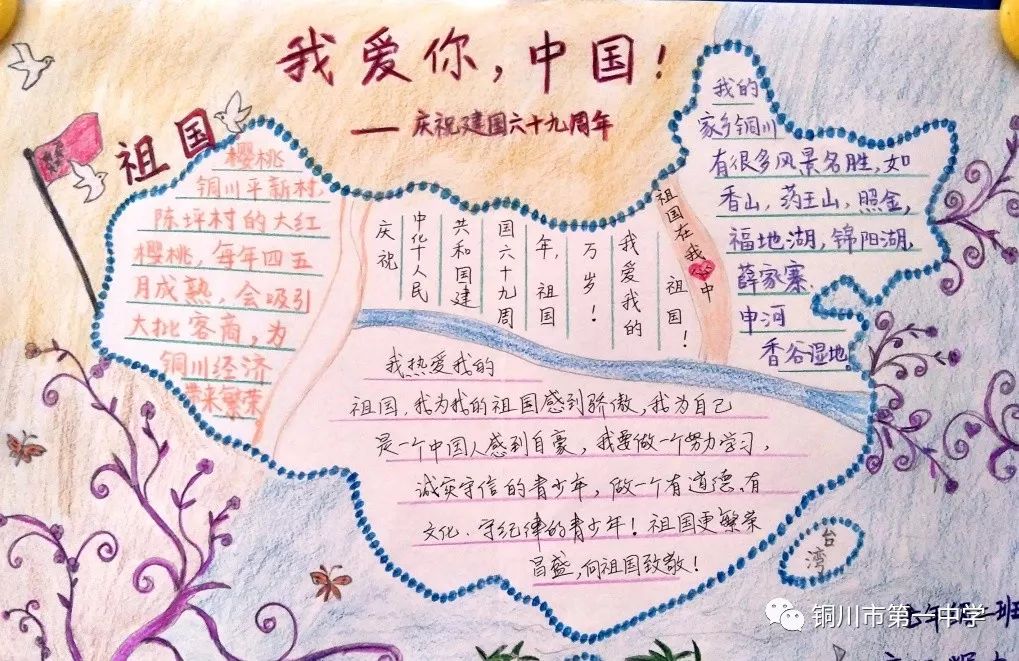 我爱你，中国！
——庆祝建国六十九周年
祖国
樱桃
铜川平新村，
陈坪村的大红
樱桃，每年四五
月成熟，会吸引
大批客商，为
铜川经济
带来繁荣
庆祝
中华人民
共和国建
国六十九周
年，祖国
万岁！
我爱我的
祖国！
祖国在我中
我的
家乡铜川
有很多风景名胜，如
香山，药王山，照金，
福地湖，锦阳湖，
薛家寨，
申河
香谷湿地。
我热爱我的
祖国，我为我的祖国感到骄傲，我为自己
是一个中国人感到自豪，我要做一个努力学习，
诚实守信的青少年，做一个有道德、有
文化、守纪律的青少年！祖国更繁荣
昌盛，向祖国致敬！
台湾
一班
铜川市第一中学